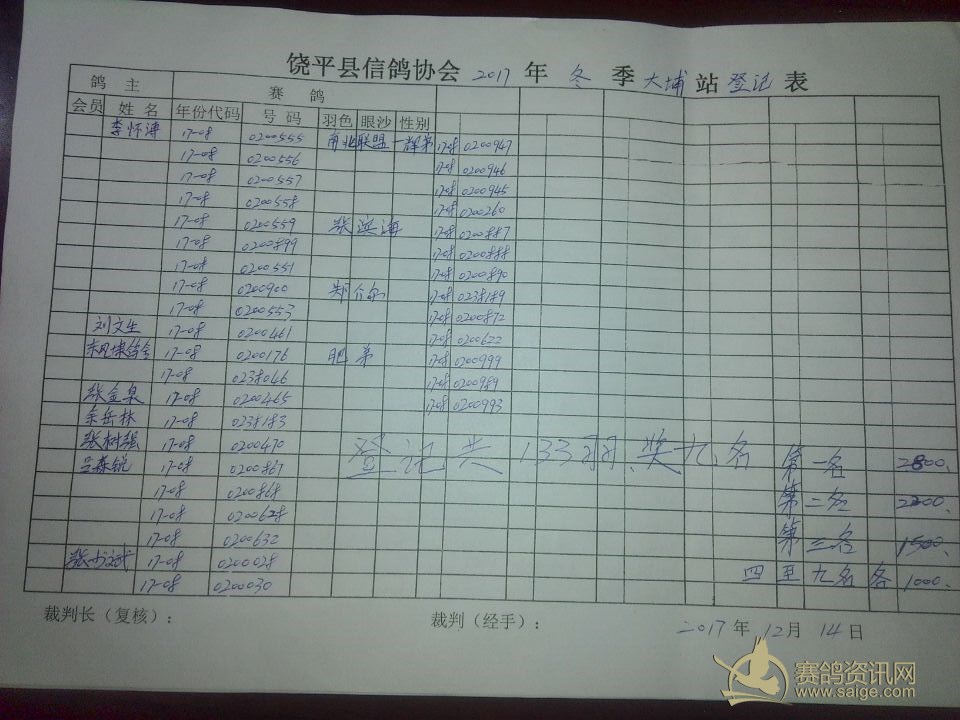 饶平县信鸽协会 2017 年 冬 季 大埔 站 登记 表
鸽 主 赛 鸽
会员 姓 名 年份代码 号 码 羽色 眼沙 性别
17-08 0200555 南北联盟 17-08 0200947
17-08 0200556 17-08 0200946
17-08 0200557 17-08 0200945
17-08 0200558 17-08 0200260
17-08 0200559 张滨海 17-08 0200887
17-08 0200899 17-08 0200888
17-08 0200551 17-08 0200890
17-08 0200900 17-08 0238189
17-08 0200553 17-08 0200872
刘文生 17-08 0200461 17-08 0200622
17-08 0200176 肥弟 17-08 0200999
17-08 0238046 17-08 0200989
张金泉 17-08 0200465 17-08 0200993
余岳林 17-08 0238183
张树强 17-08 0200470
吕森锐 17-08 0200867
登记共 133羽、奖九名
第一名 2800.
17-08 0200868
第二名 2200.
17-08 0200628
17-08 0200632
第三名 1500.
17-08 0200028
四至九名各 1000.
17-08 0200030
裁判长（复核）： 裁判（经手）： 2017 年 12 月 14 日
赛鸽资讯网
www.saige.com